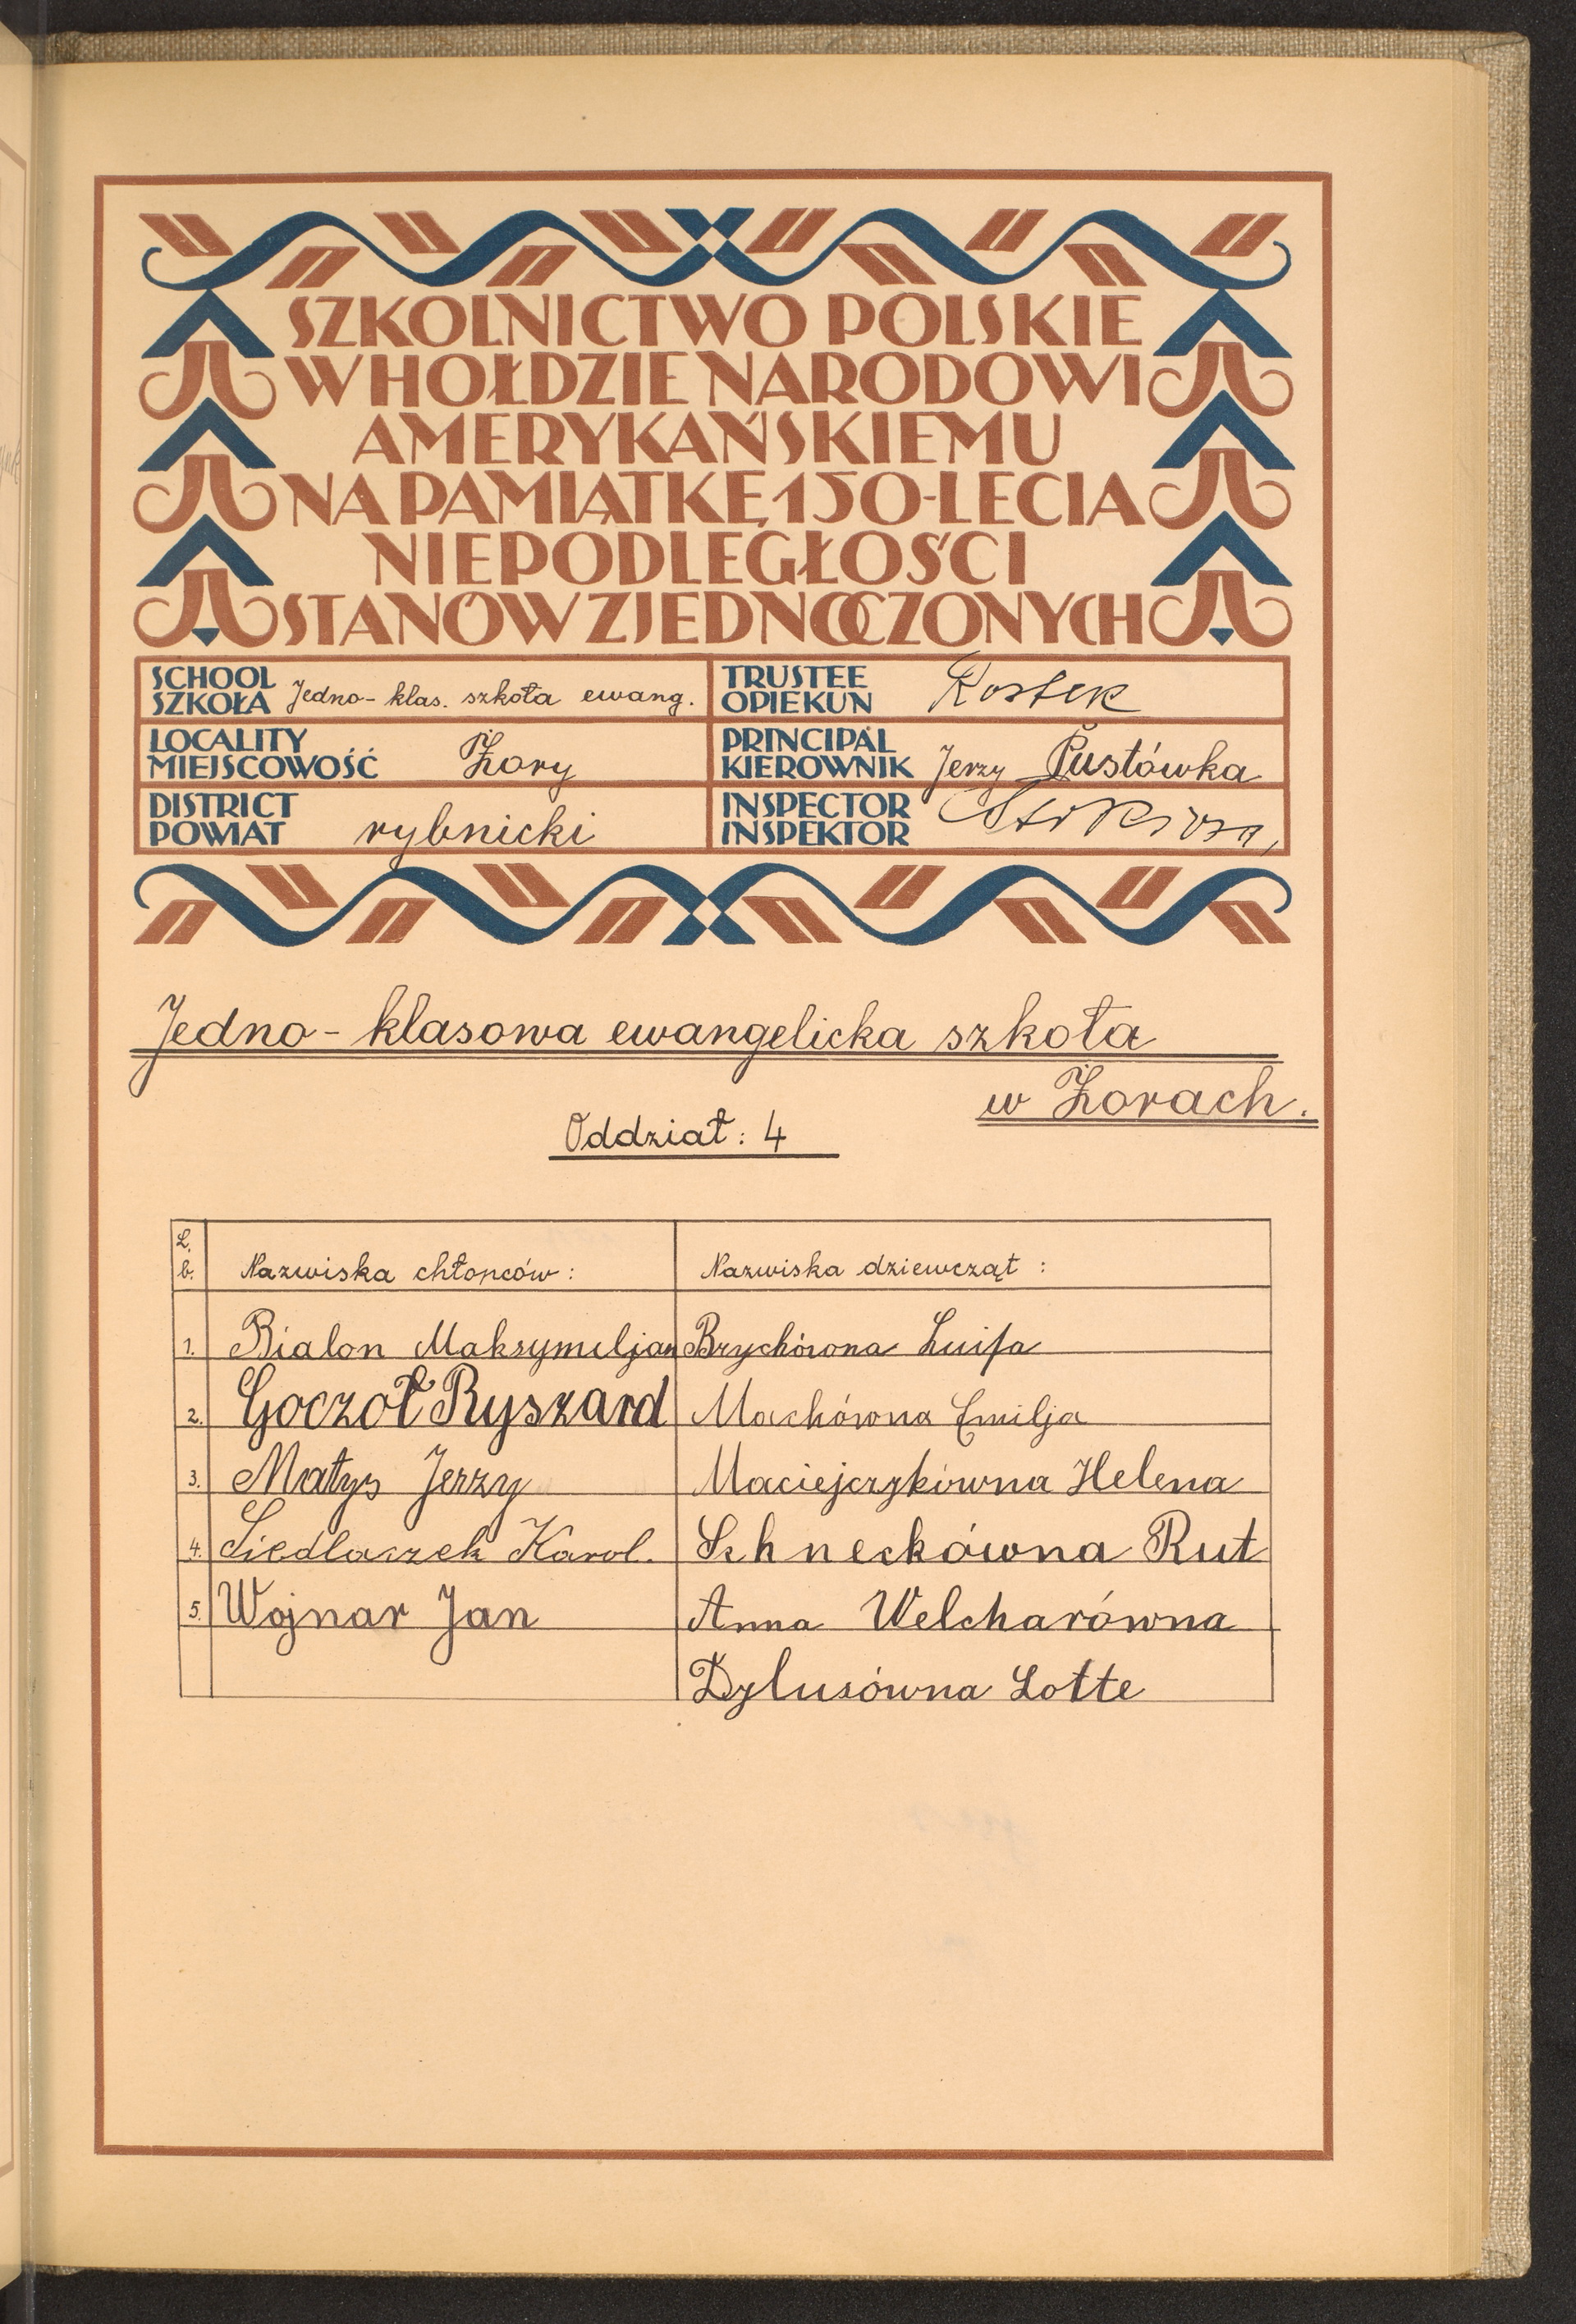 SZKOLNICTWO POLSKIE
W HOŁDZIE NARODOWI
AMERYKAŃSKIEMU
NA PAMIĄTKĘ 150-LECIA
NIEPODLEGŁOŚCI
STANÓW ZJEDNOCZONYCH
SCHOOL
SZKOŁA Jedno-klas. szkoła ewang.
TRUSTEE
OPIEKUN Rostek
LOCALITY
MIEJSCOWOŚĆ Żory
PRINCIPAL
KIEROWNIK Jerzy Pustówka
DISTRICT
POWIAT rybnicki
INSPECTOR
INSPEKTOR
Jedno-klasowa ewangelicka szkoła
w Żorach.
Oddział: 4
L.
b. Nazwiska chłopców: Nazwiska dziewcząt:
1. Bialon Maksymiljan Brychówna Luisa
2. Goczoł Ryszard Machówna Emilja
3. Matys Jerzy Maciejczykówna Helena
4. Siedlaczek Karol. Schneckówna Rut
5. Wojnar Jan Anna Welcharówna
Dylusówna Lotte